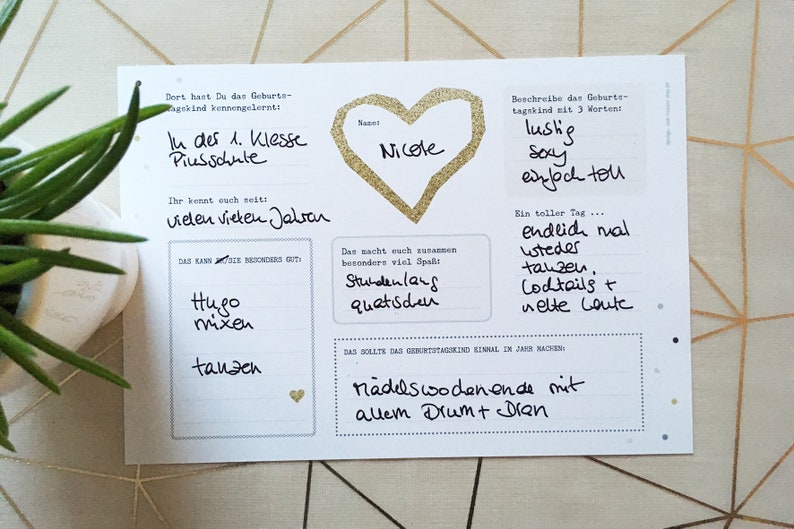 Dort hast Du das Geburts-
tagskind kennengelernt:
In der 1. Klasse
Piusschule
Ihr kennt euch seit:
vielen vielen Jahren
DAS KANN ER/SIE BESONDERS GUT:
Hugo
mixen
tanzen
Name:
Nicole
Das macht euch zusammen
besonders viel Spaß:
Stundenlang
quatschen
Beschreibe das Geburts-
tagskind mit 3 Worten:
lustig
sexy
einfach toll
Ein toller Tag ...
endlich mal
wieder
tanzen,
Cocktails +
nette Leute
DAS SOLLTE DAS GEBURTSTAGSKIND EINMAL IM JAHR MACHEN:
Mädelswochenende mit
allem Drum + Dran